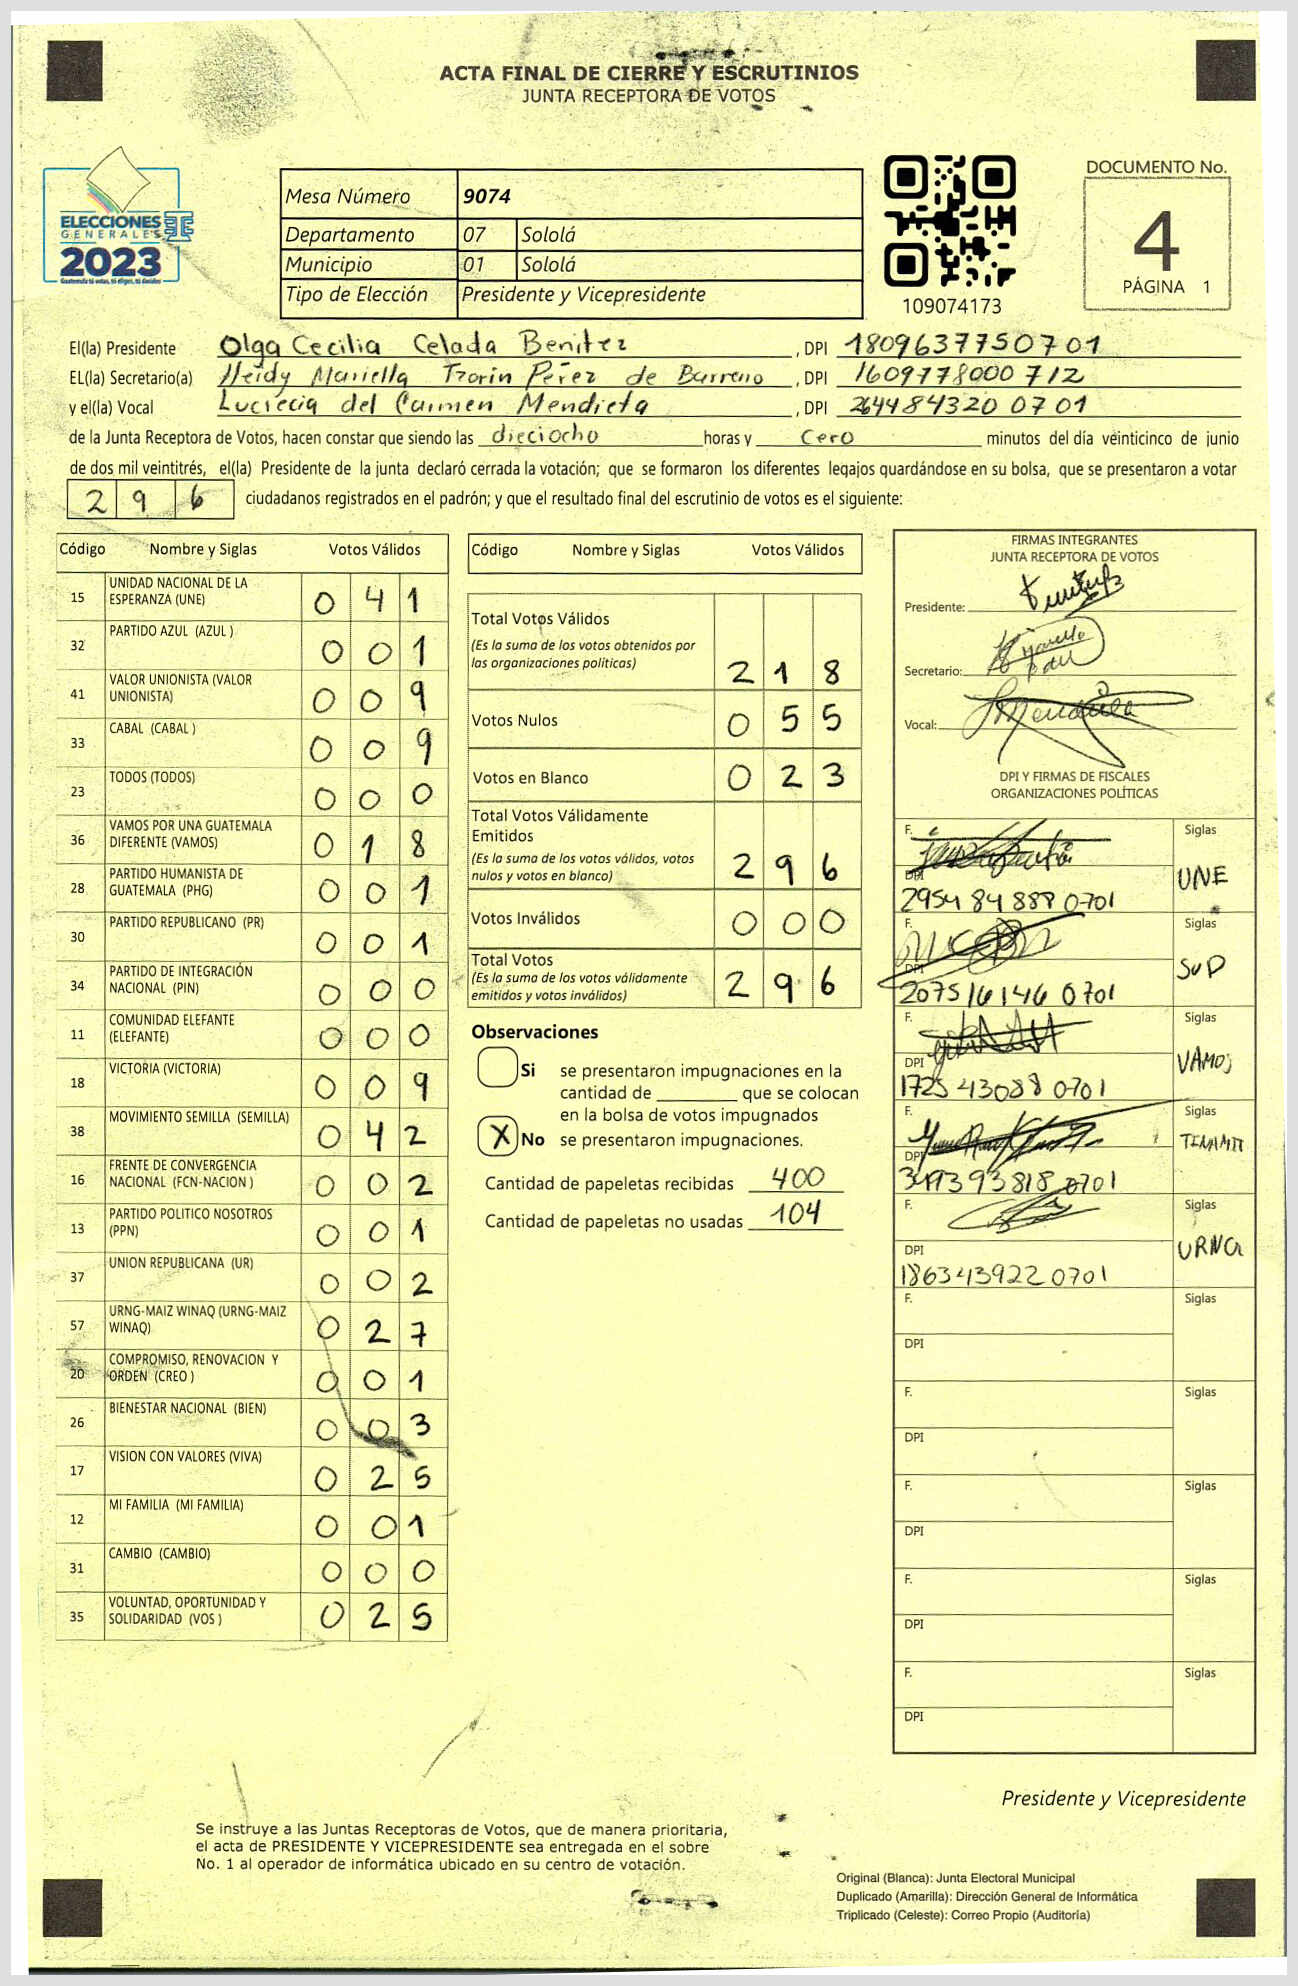 ACTA FINAL DE CIERRE Y ESCRUTINIOS
JUNTA RECEPTORA DE VOTOS
ELECCIONES
GENERALES
2023
Guatemala tú votas, tú eliges, tú decides
Mesa Número 9074
Departamento 07 Sololá
Municipio 01 Sololá
Tipo de Elección Presidente y Vicepresidente
109074173
DOCUMENTO No.
4
PÁGINA 1
El(la) Presidente Olga Cecilia Celada Benitez, DPI 1809637750701
EL(la) Secretario(a) Heidy Mariella Tzorin Pérez de Barreno, DPI 1609778000712
y el(la) Vocal Lucrecia del Carmen Mendieta, DPI 2644843200701
de la Junta Receptora de Votos, hacen constar que siendo las dieciocho horas y cero minutos del día veinticinco de junio
de dos mil veintitrés, el(la) Presidente de la junta declaró cerrada la votación; que se formaron los diferentes legajos guardándose en su bolsa, que se presentaron a votar
296 ciudadanos registrados en el padrón; y que el resultado final del escrutinio de votos es el siguiente:
Código Nombre y Siglas Votos Válidos
15 UNIDAD NACIONAL DE LA ESPERANZA (UNE) 041
32 PARTIDO AZUL (AZUL ) 001
41 VALOR UNIONISTA (VALOR UNIONISTA) 009
33 CABAL (CABAL ) 009
23 TODOS (TODOS) 000
36 VAMOS POR UNA GUATEMALA DIFERENTE (VAMOS) 018
28 PARTIDO HUMANISTA DE GUATEMALA (PHG) 001
30 PARTIDO REPUBLICANO (PR) 001
34 PARTIDO DE INTEGRACIÓN NACIONAL (PIN) 000
11 COMUNIDAD ELEFANTE (ELEFANTE) 000
18 VICTORIA (VICTORIA) 009
38 MOVIMIENTO SEMILLA (SEMILLA) 042
16 FRENTE DE CONVERGENCIA NACIONAL (FCN-NACION ) 002
13 PARTIDO POLITICO NOSOTROS (PPN) 001
37 UNION REPUBLICANA (UR) 002
57 URNG-MAIZ WINAQ (URNG-MAIZ WINAQ) 027
20 COMPROMISO, RENOVACION Y ORDEN (CREO ) 001
26 BIENESTAR NACIONAL (BIEN) 003
17 VISION CON VALORES (VIVA) 025
12 MI FAMILIA (MI FAMILIA) 001
31 CAMBIO (CAMBIO) 000
35 VOLUNTAD, OPORTUNIDAD Y SOLIDARIDAD (VOS ) 025
Código Nombre y Siglas Votos Válidos
Total Votos Válidos
(Es la suma de los votos obtenidos por
las organizaciones políticas) 218
Votos Nulos 055
Votos en Blanco 023
Total Votos Válidamente
Emitidos
(Es la suma de los votos válidos, votos
nulos y votos en blanco) 296
Votos Inválidos 000
Total Votos
(Es la suma de los votos válidamente
emitidos y votos inválidos) 296
Observaciones
Si se presentaron impugnaciones en la
cantidad de ________ que se colocan
en la bolsa de votos impugnados
X No se presentaron impugnaciones.
Cantidad de papeletas recibidas 400
Cantidad de papeletas no usadas 104
FIRMAS INTEGRANTES
JUNTA RECEPTORA DE VOTOS
Presidente:
Secretario:
Vocal:
DPI Y FIRMAS DE FISCALES
ORGANIZACIONES POLÍTICAS
F. Siglas
DPI 2954 84 888 0701 UNE
F. Siglas
DPI 2075 16146 0701 SUD
F. Siglas
DPI 1725 43088 0701 VAMOS
F. Siglas
DPI 93818 0701
F. Siglas
DPI 186343922 0701 URNG
F. Siglas
DPI
F. Siglas
DPI
F. Siglas
DPI
F. Siglas
DPI
F. Siglas
DPI
Presidente y Vicepresidente
Se instruye a las Juntas Receptoras de Votos, que de manera prioritaria,
el acta de PRESIDENTE Y VICEPRESIDENTE sea entregada en el sobre
No. 1 al operador de informática ubicado en su centro de votación.
Original (Blanca): Junta Electoral Municipal
Duplicado (Amarilla): Dirección General de Informática
Triplicado (Celeste): Correo Propio (Auditoría)